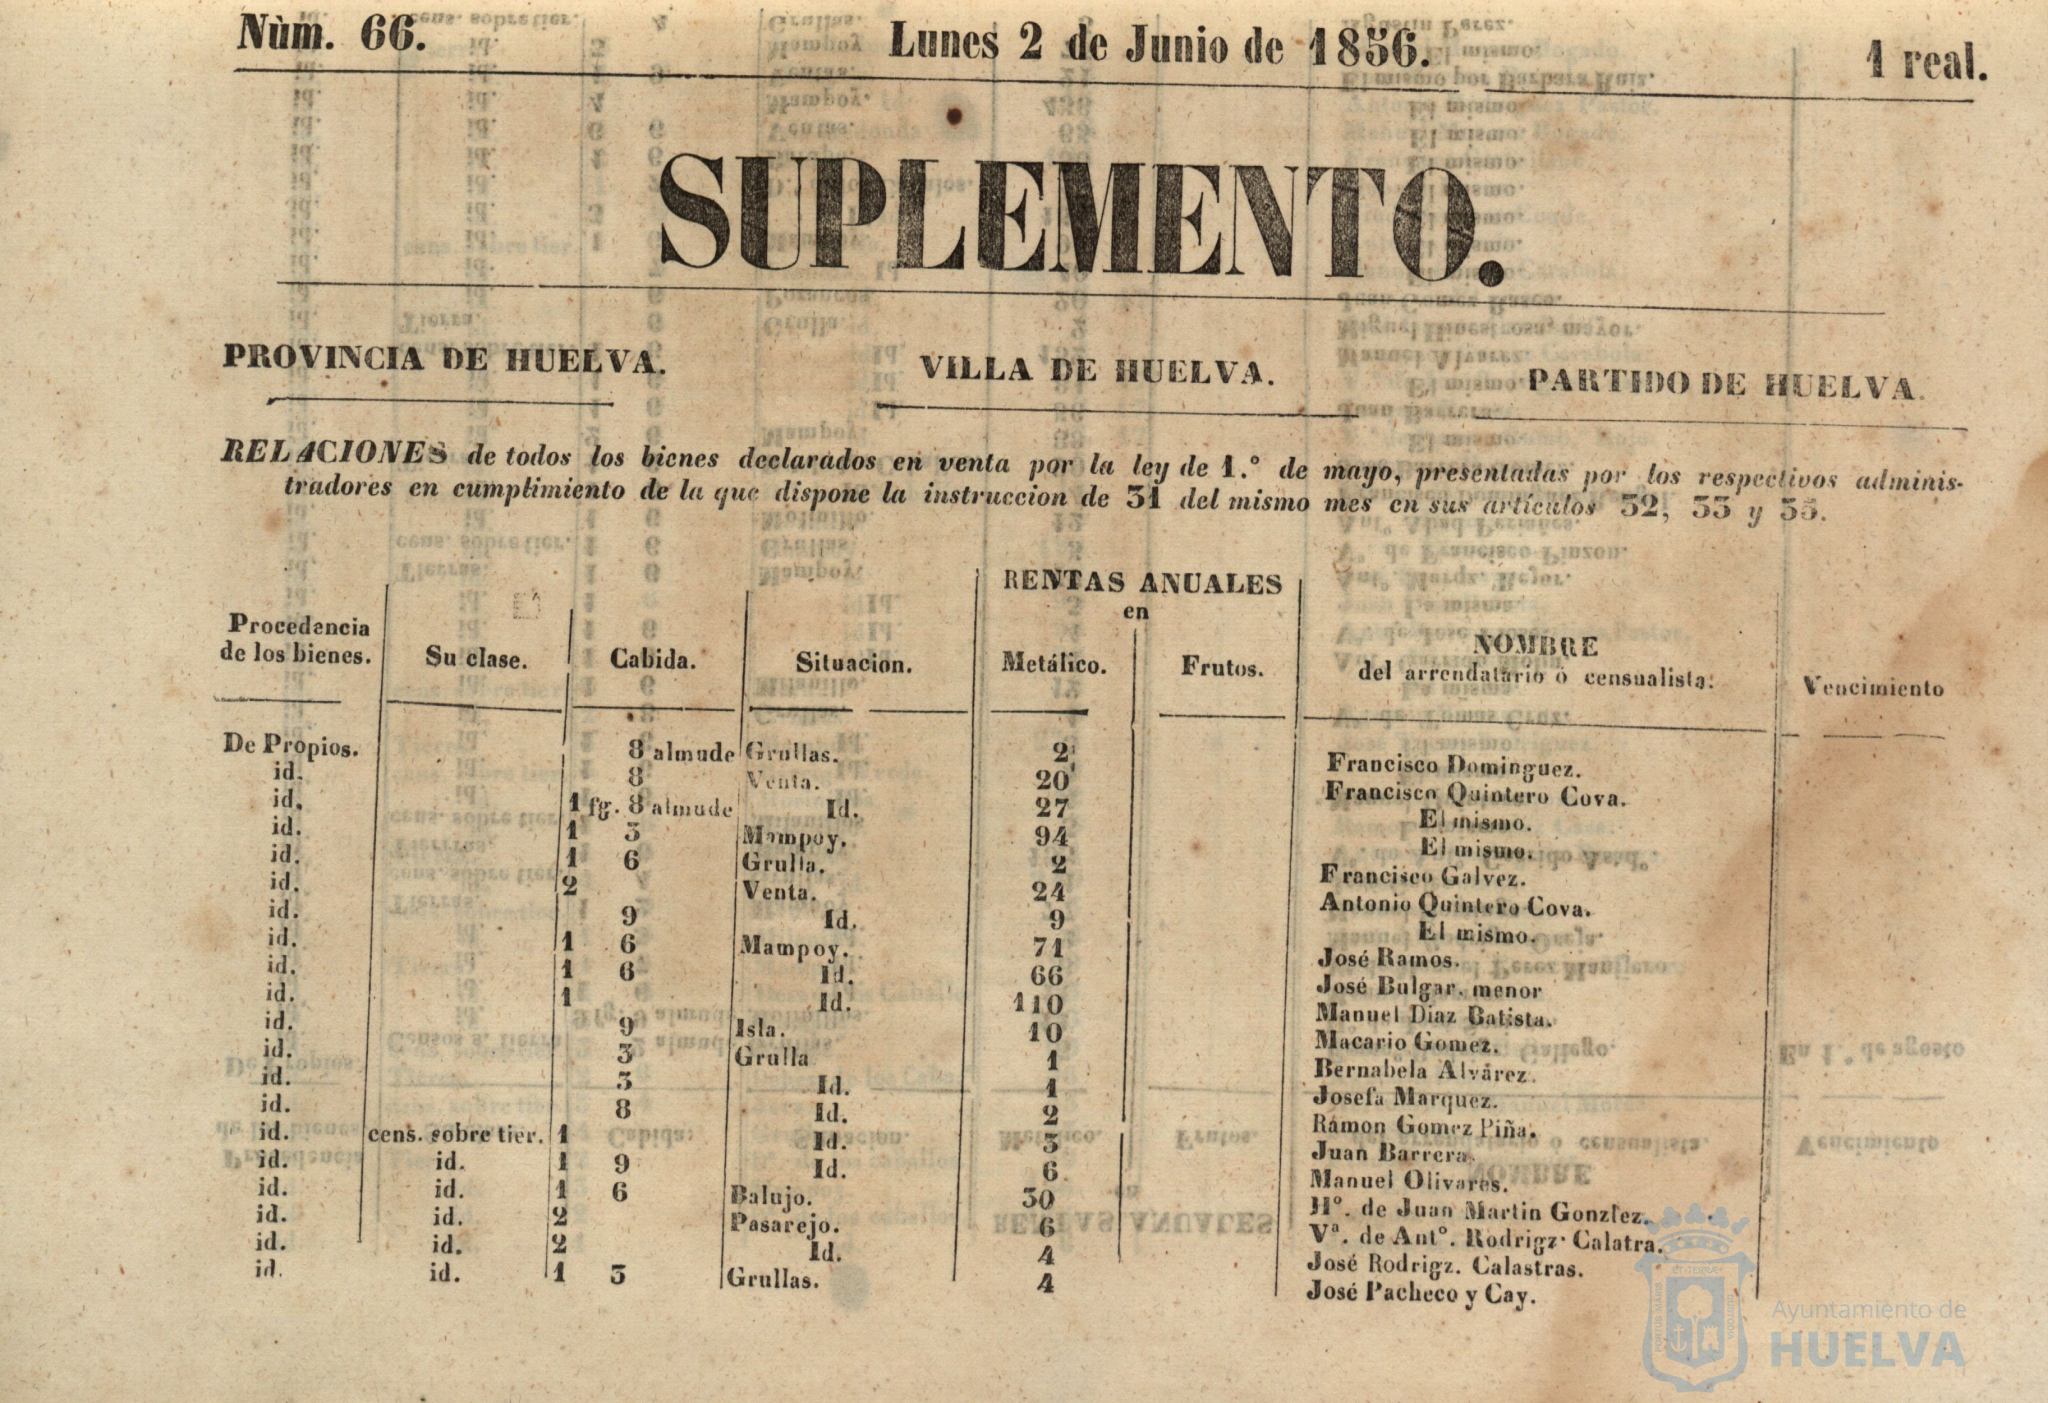 Nùm. 66. Lunes 2 de Junio de 1856. 1 real.
SUPLEMENTO.
PROVINCIA DE HUELVA. VILLA DE HUELVA. PARTIDO DE HUELVA.
RELACIONES de todos los bienes declarados en venta por la ley de 1.º de mayo, presentadas por los respectivos adminis-
tradores en cumplimiento de la que dispone la instruccion de 31 del mismo mes en sus artículos 32, 33 y 35.
RENTAS ANUALES
en
Procedencia
de los bienes. Su clase. Cabida. Situacion. Metálico. Frutos. NOMBRE
del arrendatario ò censualista. Vencimiento
De Propios. 8 almude Grullas. 2 Francisco Dominguez.
id. 8 Venta. 20 Francisco Quintero Cova.
id. 1 fg. 8 almude Id. 27 El mismo.
id. 1 3 Mampoy. 94 El mismo.
id. 1 6 Grulla. 2 Francisco Galvez.
id. 2 Venta. 24 Antonio Quintero Cova.
id. 9 Id. 9 El mismo.
id. 1 6 Mampoy. 71 José Ramos.
id. 1 6 Id. 66 José Bulgar. menor
id. 1 Id. 110 Manuel Diaz Batista.
id. 9 Isla. 10 Macario Gomez.
id. 3 Grulla 1 Bernabela Alvárez.
id. 3 Id. 1 Josefa Marquez.
id. 8 Id. 2 Ramon Gomez Piña.
id. cens. sobre tier. 1 Id. 3 Juan Barrera.
id. id. 1 9 Id. 6 Manuel Olivares.
id. id. 1 6 Balujo. 30 Hº. de Juan Martin Gonzlez.
id. id. 2 Pasarejo. 6 Vª. de Antº. Rodrigz. Calatra.
id. id. 2 Id. 4 José Rodrigz. Calastras.
id. id. 1 3 Grullas. 4 José Pacheco y Cay.
Ayuntamiento de
HUELVA